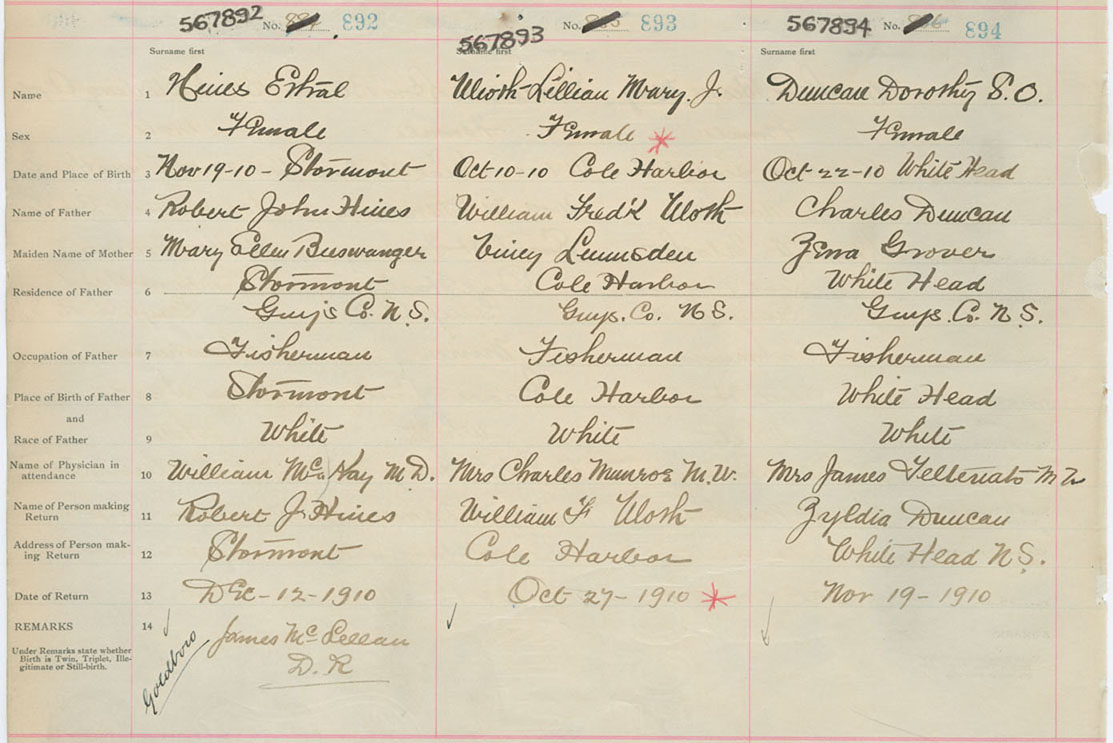 567892 No. 892 567893 No. 893 567894 No. 894
Surname first Surname first Surname first
Name 1 Hines Ethal Ulioth Lillian Mary. J. Duncan Dorothy S.O.
Sex 2 Female Female Female
Date and Place of Birth 3 Nov 19-10 - Stormont Oct 10-10 Cole Harbor Oct-22-10 White Head
Name of Father 4 Robert John Hines William Fred'k Uloth Charles Duncan
Maiden Name of Mother 5 Mary Ellen Buswanger Viney Lumsden Zena Grover
Residence of Father 6 Stormont Cole Harbor White Head
Guy's Co. N.S. Guys. Co. N S. Guys. Co. N S.
Occupation of Father 7 Fisherman Fisherman Fisherman
Place of Birth of Father 8 Stormont Cole Harbor White Head
and
Race of Father 9 White White White
Name of Physician in
attendance 10 William McKay M.D. Mrs Charles Munroe M.W. Mrs James M W
Name of Person making
Return 11 Robert J. Hines William F Uloth Zyldia Duncan
Address of Person mak-
ing Return 12 Stormont Cole Harbor White Head N S.
Date of Return 13 Dec-12-1910 Oct 27-1910 Nov 19-1910
REMARKS 14 Goldboro James McLellan
Under Remarks state whether
Birth is Twin, Triplet, Ille-
gitimate or Still-birth.
D. R